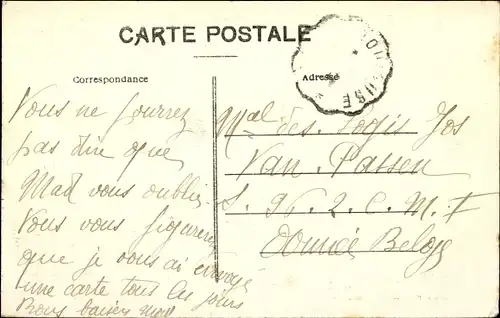 CARTE POSTALE
Correspondance
Adresse
Vous ne pourrez
pas dire que
Mad vous oublie.
Vous vous figurerez
que je vous ai envoyé
une carte tous les jours
Bons baisers Mad
Mal. des Logis Jos
Van Passen
S. P. 2. C. M. I
Armée Belge